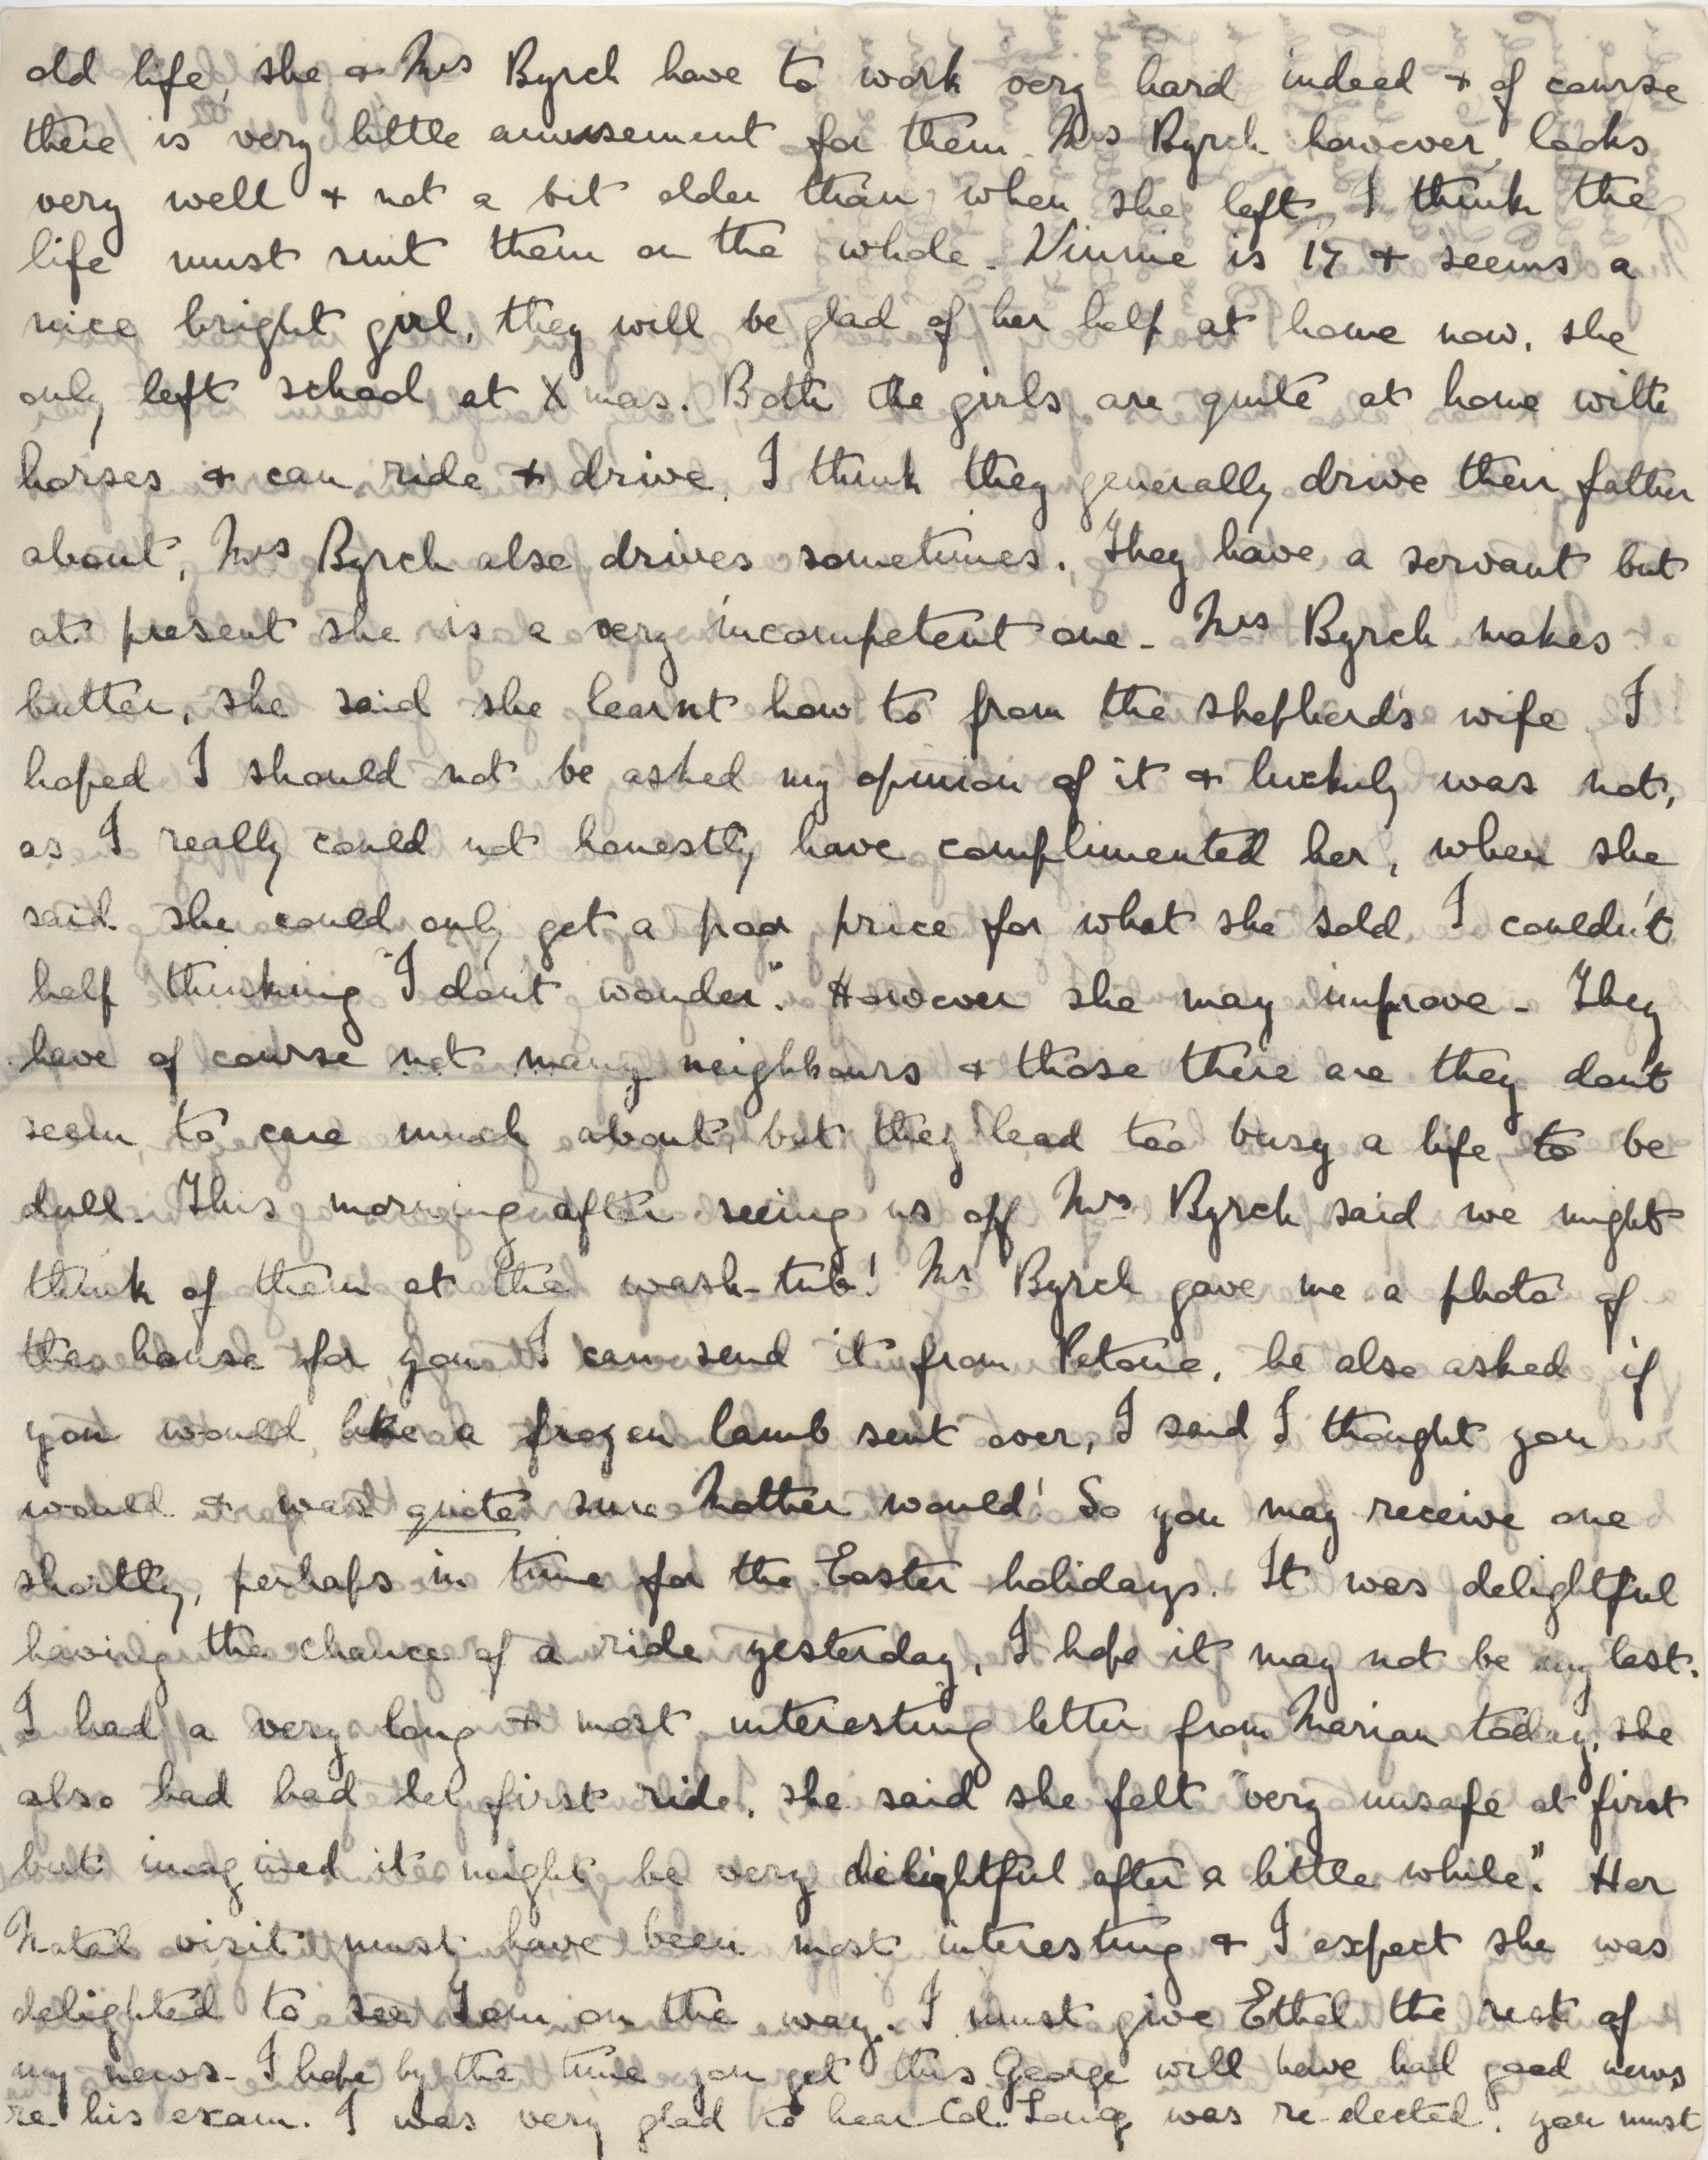 old life, she & Mrs Byrch have to work very hard indeed & of course
there is very little amusement for them. Mrs Byrch however looks
very well & not a bit older than when she left, I think the
life must suit them on the whole. Vinnie is 17 & seems a
nice bright girl, they will be glad of her help at home now, she
only left school at Xmas. Both the girls are quite at home with
horses & can ride & drive, I think they generally drive their father
about, Mrs Byrch also drives sometimes. They have a servant but
at present she is a very incompetent one - Mrs Byrch makes
butter, she said she learnt how to from the shepherd's wife I
hoped I should not be asked my opinion of it & luckily was not,
as I really could not honestly have complimented her, when she
said she could only get a poor price for what she sold, I couldn't
help thinking "I don't wonder". However she may improve - They
have of course not many neighbours & those there are they don't
seem to care much about, but they lead too busy a life to be
dull. This morning after seeing us off Mrs Byrch said we might
think of them at the wash-tub! Mr Byrch gave me a photo of
the house for you I can send it from Petone, he also asked if
you would like a frozen lamb sent over, I said I thought you
would & was quite sure Mother would! So you may receive one
shortly, perhaps in time for the Easter holidays. It was delightful
having the chance of a ride yesterday, I hope it may not be my last.
I had a very long & most interesting letter from Marian today, she
also had had her first ride, she said she felt "very unsafe at first
but imagined it might be very delightful after a little while". Her
Natal visit must have been most interesting & I expect she was
delighted to see Tom on the way. I must give Ethel the rest of
my news - I hope by the time you get this George will have had good news
re his exam. I was very glad to hear Col. Long was re-elected, you must